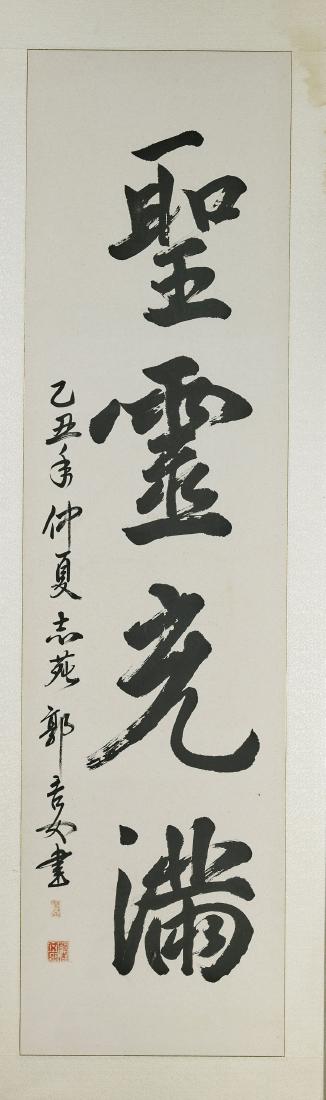 聖靈充滿
乙丑年仲夏志苑郭言书書